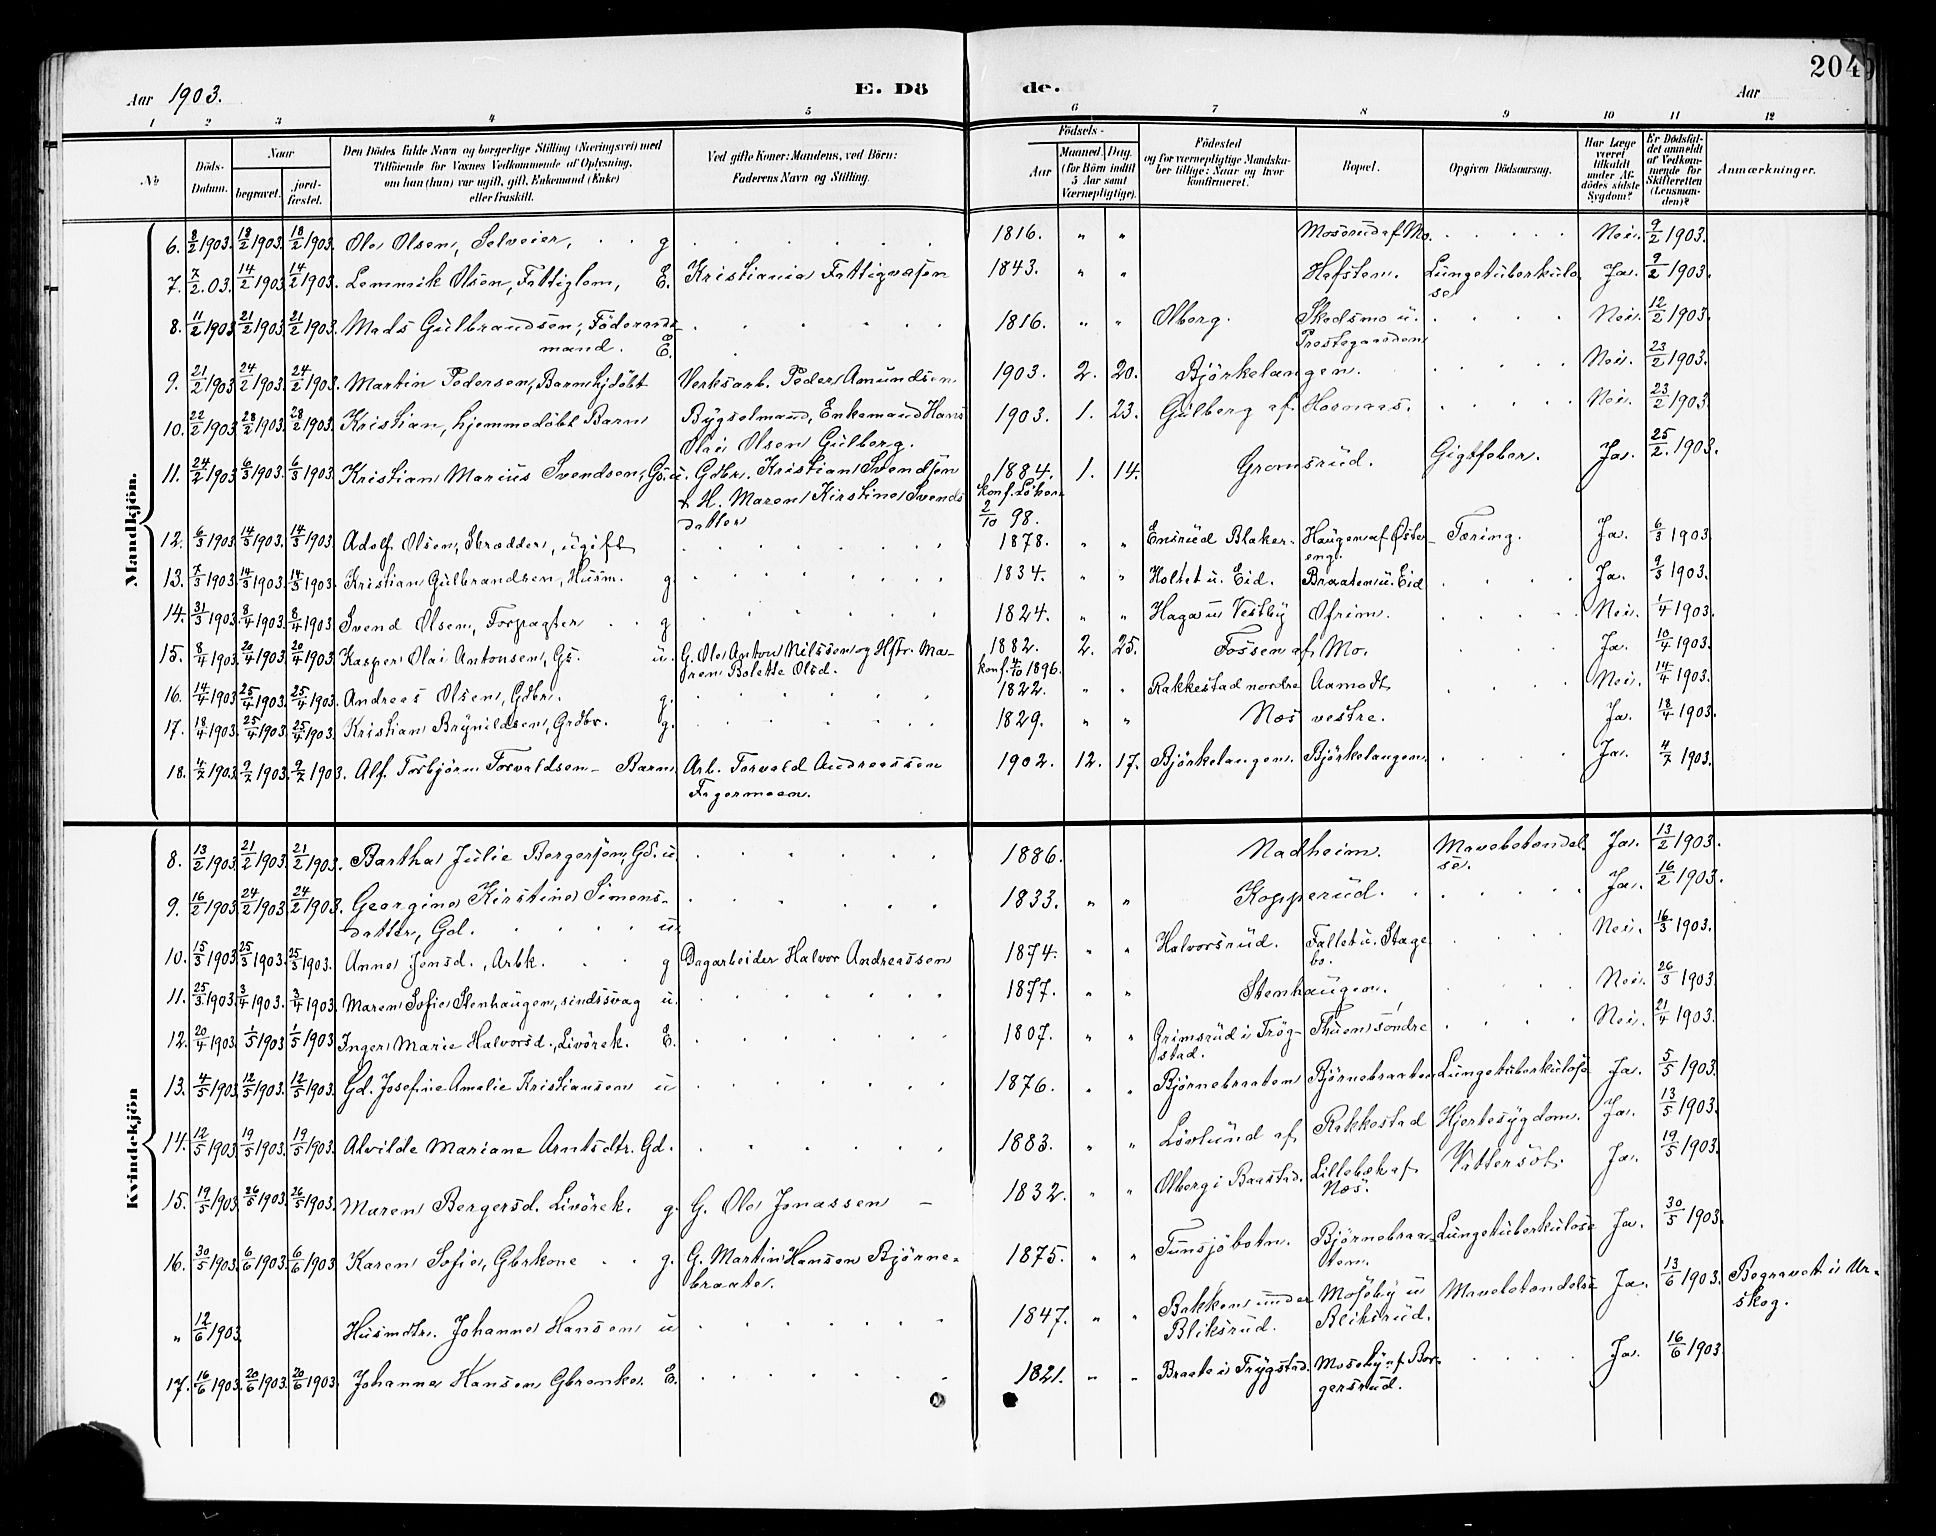 204
Aar 1903.
E. Dö
de.
Aar
1 2 3 4 5 6 7 8 9 10 11 12
No
Döds-Datum.
Naar
begravet.
jord-fæstet.
Den Dödes fulde Navn og borgerlige Stilling (Næringsvei) med Tilföiende for Voxnes Vedkommende af Oplysning, om han (hun) var ugift, gift, Enkemand (Enke) eller fraskilt.
Ved gifte Koner: Mandens, ved Börn: Faderens Navn og Stilling.
Födsels-
Aar
Maaned. Dag.
(for Börn indtil 5 Aar samt Værnepligtige).
Födested og for værnepligtige Mandskaber tillige: Naar og hvor konfirmeret.
Bopæl.
Opgiven Dödsaarsag.
Har Læge været tilkaldt under Afdödes sidste Sygdom?
Er Dödsfaldet anmeldt af Vedkommende for Skifteretten (Lensmanden)?
Anmærkninger.
Mandkjön.
6. 8/2 1903. 18/2 1903. 18/2 1903. Ole Olsen, Selveier, g 1816. " " Moserud af Mo. Nei. 9/2 1903.
7. 7/2 .03. 14/2 1903. 14/2 1903. Lemmik Olsen, Fattiglem, E. Kristiania Fattigvæsen 1843. " " Hefstem. Lungetuberkulose Ja. 9/2 1903.
8. 11/2 1903 21/2 1903. 21/2 1903. Mads Gulbrandsen, Föderaads-mand. E. 1816. " " Olberg. Skedsmo u. Prestegaarden Nei. 12/2 1903.
9. 21/2 1903 24/2 1903. 24/2 1903. Martin Pedersen, Barn hjdöbt Verksarb. Peder Amundsen 1903. 2. 20. Björkelangen. Nei. 23/2 1903.
10. 22/2 1903 28/2 1903. 28/2 1903. Kristian, hjemmedöbt Barn Bygselmand, Enkemand Hans Olai Olsen Gulberg. 1903. 1. 23. Gulberg af Hosnaas. Nei. 23/2 1903.
11. 24/2 1903 6/3 1903. 6/3 1903. Kristian Marius Svendsen, Gs. u. Gdbr. Kristian Svendsen & H. Maren Kirstine Svendsdatter 1884. 1. 14. Konf. Löken 2/10 98. Gromsrud. Gigtfeber. Ja. 25/2 1903.
12. 6/3 1903 14/3 1903. 14/3 1903. Adolf Olsen, Skrædder, ugift 1878. " " Ensrud Blaker Haugen af Østereng. Tæring. Ja. 6/3 1903
13. 7/3 1903 14/3 1903. 14/3 1903. Kristian Gulbrandsen, Husm. g 1834. " " Holtet u. Eid. Braaten u. Eid Ja. 9/3 1903.
14. 31/3 1903 8/4 1903. 8/4 1903 Svend Olsen, Forpagter g 1824. " " Haga u Vestby Ofrim. Nei. 1/4 1903.
15. 8/4 1903. 20/4 1903. 20/4 1903. Kasper Olai Antonsen, Gs. u. G. Ole Anton Nilssen og Hstr. Maren Bolette Olsd. 1882. 2. 25. Konf. 4/10 1896. Fossen af Mo. Ja. 10/4 1903.
16. 14/4 1903. 25/4 1903. 25/4 1903. Andreas Olsen, Gdbr. g. 1822. " " Rakkestad nordre Aamodt Nei. 14/4 1903.
17. 18/4 1903. 25/4 1903. 25/4 1903. Kristian Brynildsen, Grdbr. g. 1829. " " Næs vestre. Ja. 18/4 1903.
18. 4/7 1903. 9/7 1903. 9/7 1903. Alf Torbjörn Torvaldsen - Barn, Arb. Torvald Andreassen Fagermoen. 1902. 12. 17. Björkelangen. Björkelangen. Ja. 4/7 1903.
Kvindekjön
8. 13/2 1903. 21/2 1903. 21/2 1903. Bartha Julie Bergersen, Gd. u. 1886. Nadheim. Mavebetændelse. Ja. 13/2 1903.
9. 16/2 1903. 24/2 1903. 24/2 1903. Georgine Kirstine Simensdatter, Gd. u. 1833. " " Kopperud. Ja. 16/2 1903.
10. 15/3 1903 25/3 1903. 25/3 1903. Anne Jensd., Arbk. g Dagarbeider Halvor Andreassen 1874. " " Halvorsrud. Fallet u. Stagebo. Nei. 16/3 1903.
11. 25/3 1903. 3/4 1903. 3/4 1903. Maren Sofie Stenhaugen, sindssvag u. 1877. " " Stenhaugen. Nei. 26/3 1903.
12. 20/4 1903. 1/5 1903 1/5 1903 Inger Marie Halvorsd., Livörek. E. 1807. " " Grimsrud i Trögstad. Thuen söndre Nei. 21/4 1903.
13. 4/5 1903. 12/5 1903. 12/5 1903. Gd. Josefine Amalie Kristiansen u 1876. " " Björnebraaten Björnebraaten Lungetuberkulose Ja. 5/5 1903.
14. 12/5 1903. 19/5 1903. 19/5 1903. Alvilde Mariane Arntsdtr. Gd. 1883. " " Lövlund af Rakkestad Hjertesygdom. Ja. 13/5 1903.
15. 19/5 1903. 26/5 1903. 26/5 1903. Maren Bergersd. Livörek. g. G. Ole Jonassen - 1832. " " Olberg i Baastad. Lillebæk af Næs. Vattersot. Ja. 19/5 1903.
16. 30/5 1903. 6/6 1903. 6/6 1903 Karen Sofie, Gbrkone g. G. Martin Hansen Björnebraate. 1875. " " Tunsjöbotn. Björnebraaten. Lungetuberkulose Ja. 30/5 1903.
" 12/6 1903. Husmdtr. Johanne Hansen u 1847. " " Bakken under Bliksrud. Moseby u Bliksrud. Mavebetændelse Ja. 13/6 1903. Begravet i Urskog.
17. 16/6 1903. 20/6 1903. 20/6 1903. Johanne Hansen Gbrenke. E. 1821. " " Braate i Trygstad. Moseby af Borgersrud. Ja. 16/6 1903.